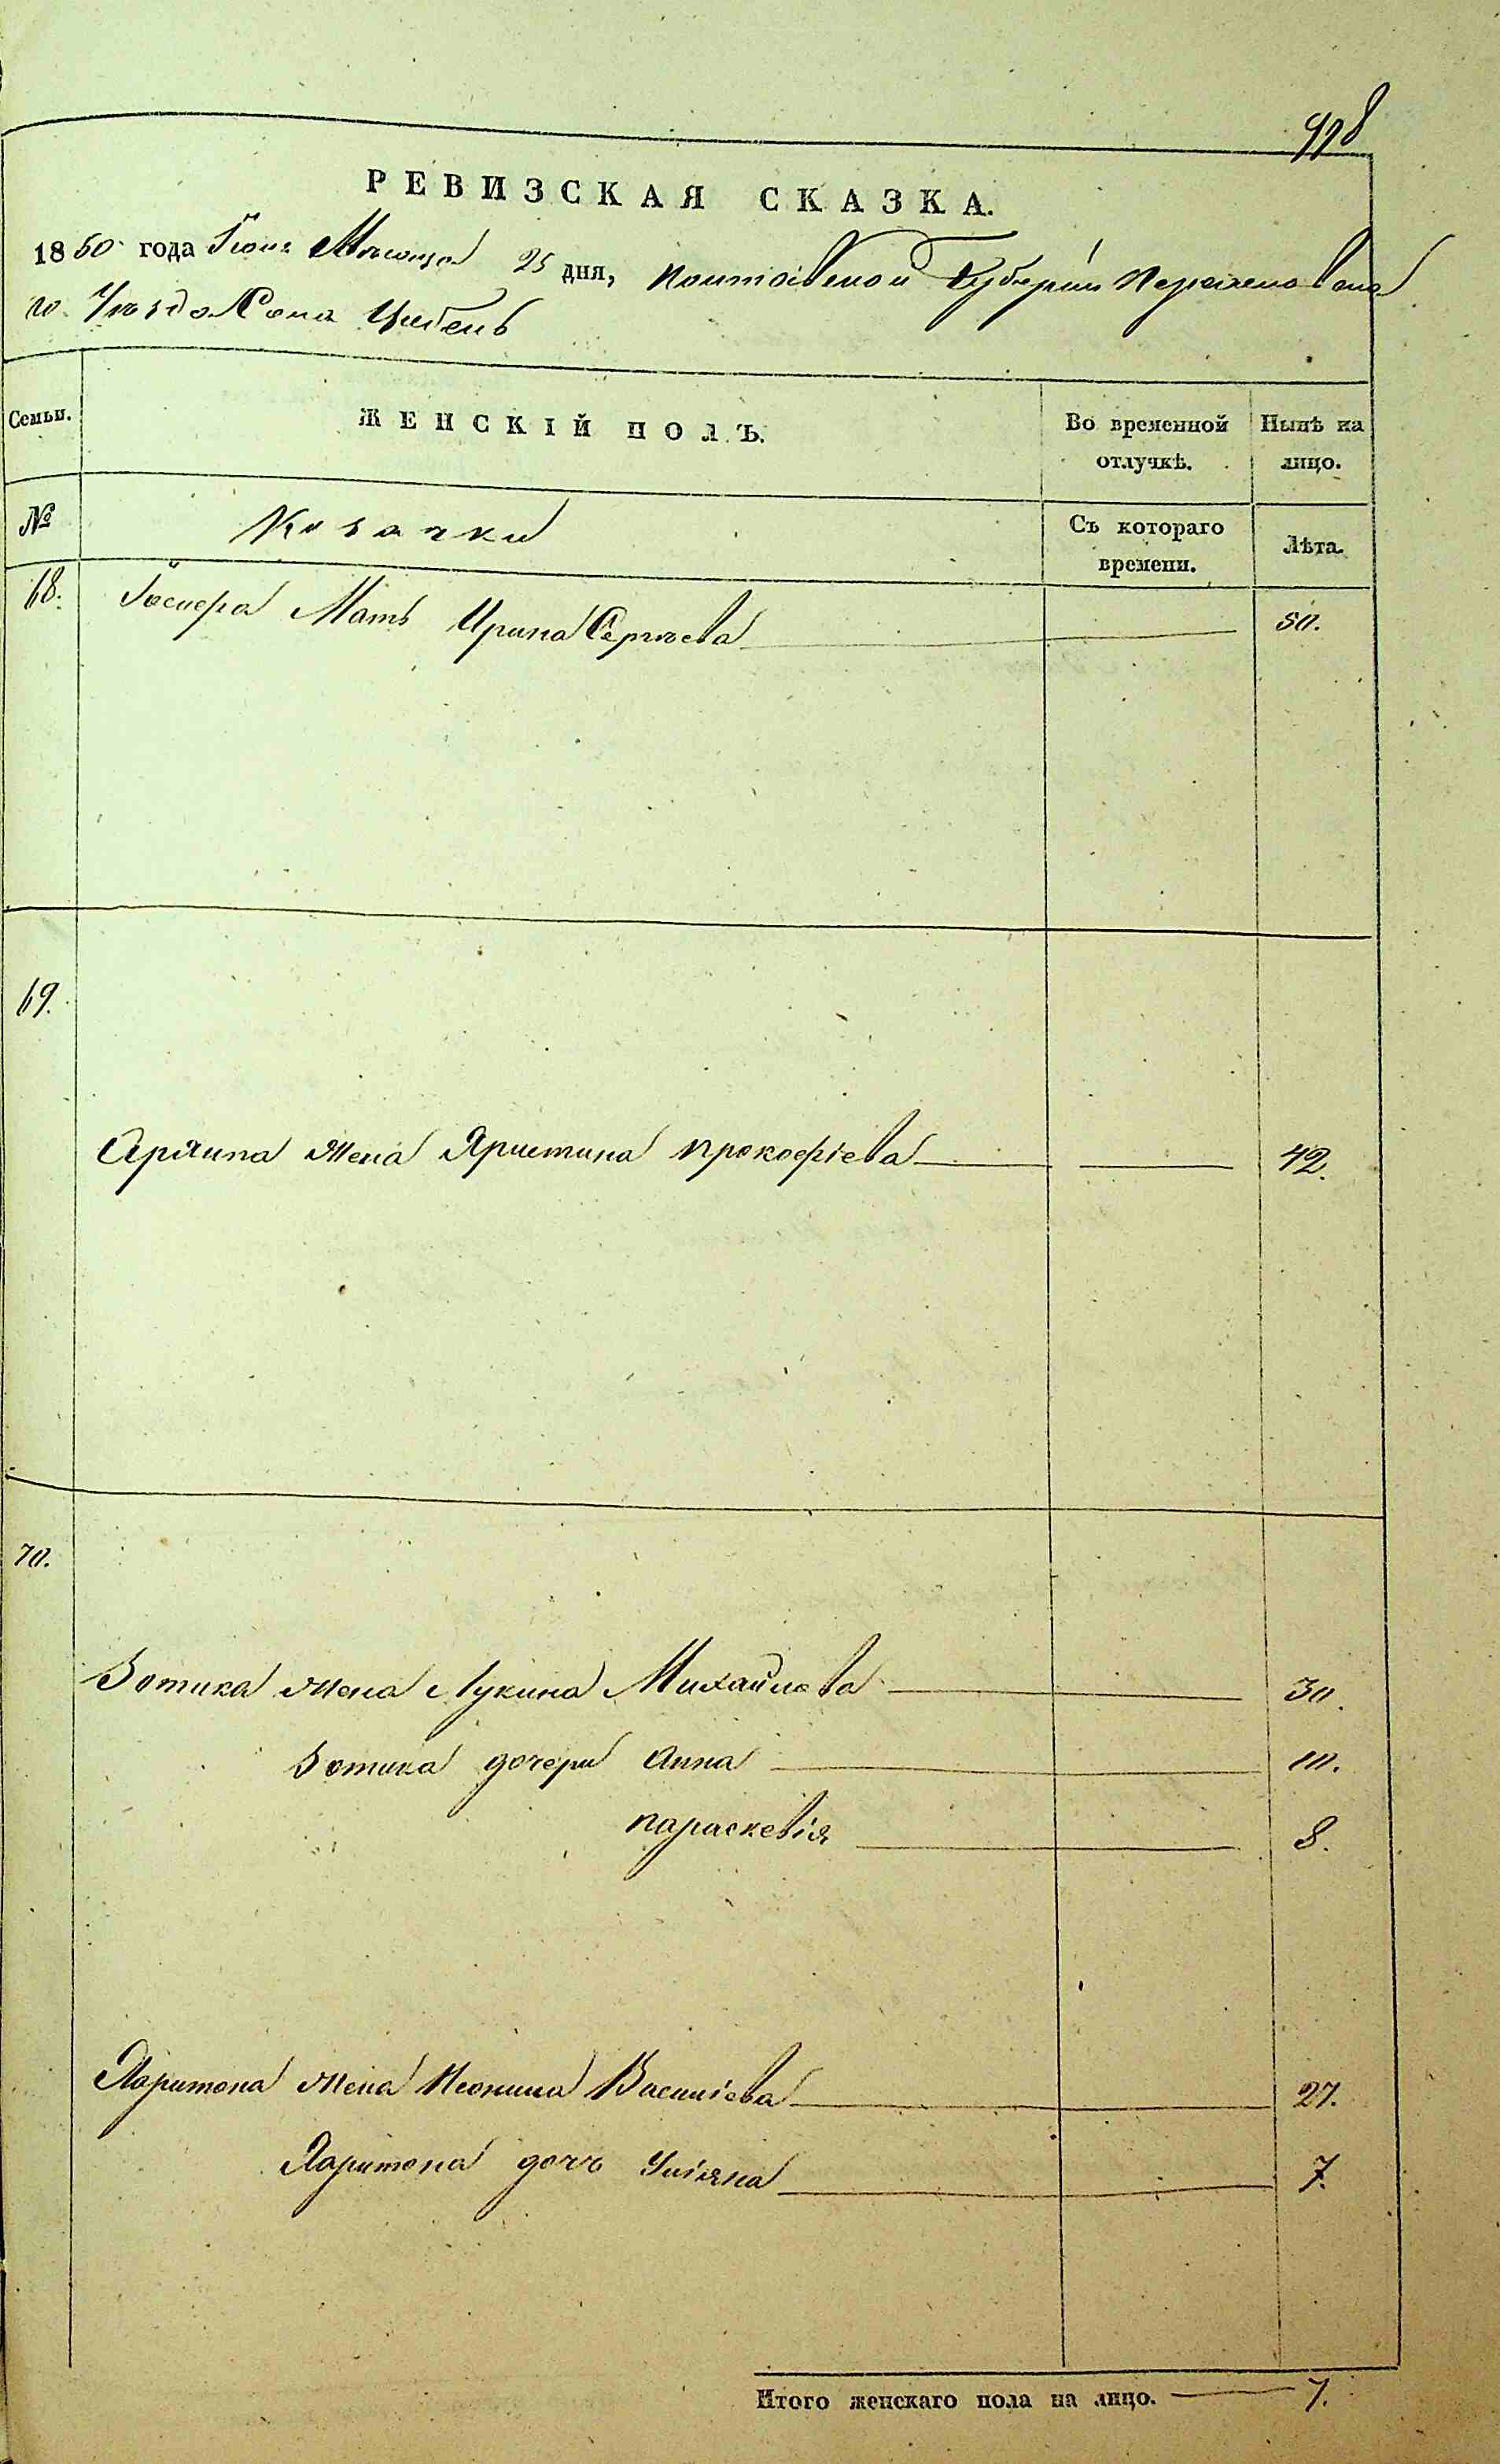 978
РЕВИЗСКАЯ СКАЗКА.
1850 года Іюня Мѣсяца 25 дня, Полтавской Губерніи Переяславска
го Уѣзда Села Цибель
Семьи. ЖЕНСКІЙ ПОЛЪ. Во временной отлучкѣ. Нынѣ на лицо.
№ Козачки Съ котораго времени. Лѣта.
68. Мать Ирина Сергѣева 50.
69.
жена Христина Прокофіева 42.
70.
Зотика жена Лукина Михайлова 30.
Зотика дочери Анна 10.
Параскевія 8.
Харитона жена Василіева 27.
Харитона дочь Уліяна 7.
Итого женскаго пола на лицо. 7.